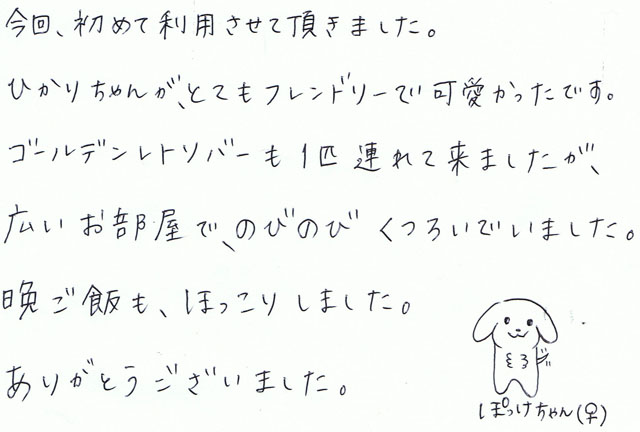 今回、初めて利用させて頂きました。
ひかりちゃんが、とてもフレンドリーで可愛かったです。
ゴールデンレトリバーも1匹連れて来ましたが、
広いお部屋で、のびのびくつろいでいました。
晩ご飯も、ほっこりしました。
ありがとうございました。
ぽっけちゃん(♀)